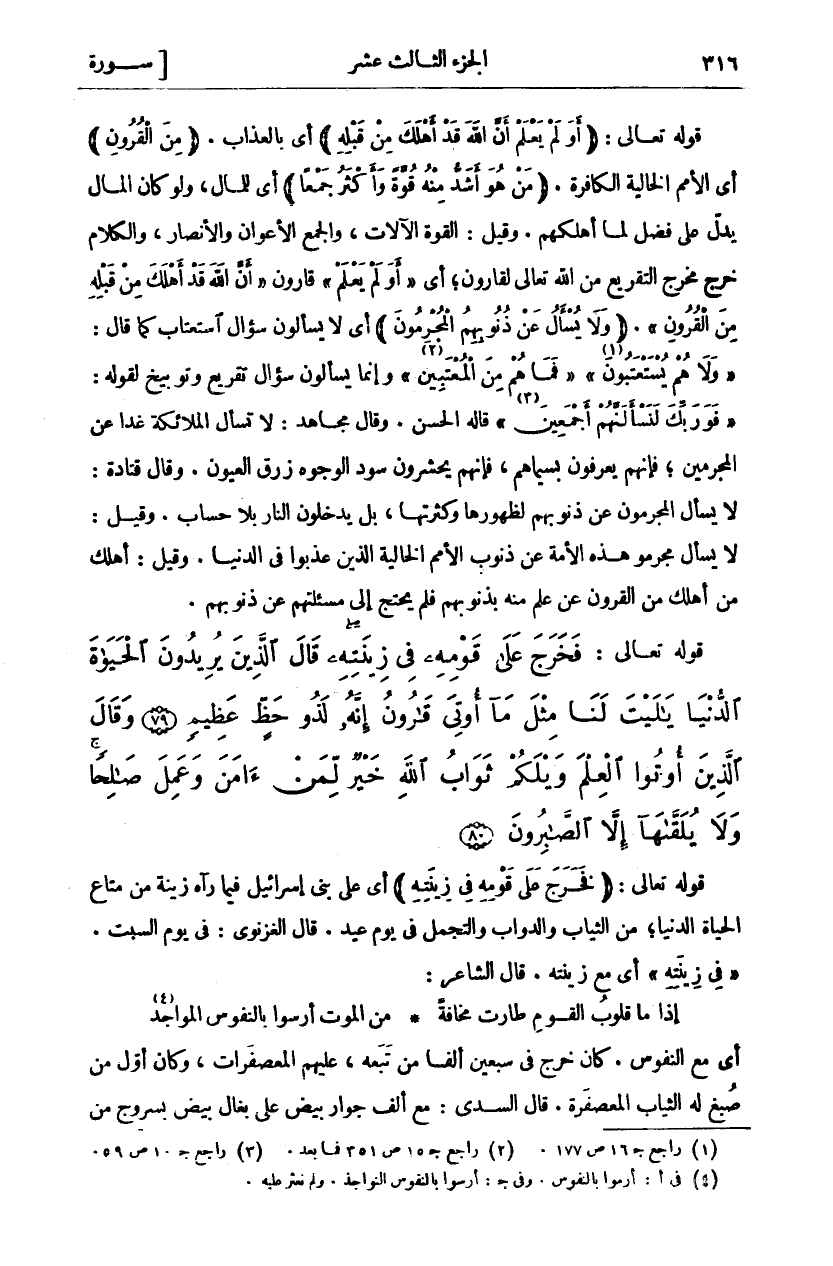 ٣١٦ الجزء الثالث عشر [ ســورة
قوله تعالى : ﴿ أَوَ لَمْ يَعْلَمْ أَنَّ اللهَ قَدْ أَهْلَكَ مِنْ قَبْلِهِ ﴾ أى بالعذاب . ﴿ مِنَ الْقُرُونِ ﴾
أى الأمم الخالية الكافرة . ﴿ مَنْ هُوَ أَشَدُّ مِنْهُ قُوَّةً وَأَكْثَرُ جَمْعًا ﴾ أى للمال، ولو كان المال
يدلّ على فضل لما أهلكهم . وقيل : القوة الآلات ، والجمع الأعوان والأنصار ، والكلام
خرج مخرج التقريع من الله تعالى لقارون؛ أى « أَوَ لَمْ يَعْلَمْ » قارون « أَنَّ اللهَ قَدْ أَهْلَكَ مِنْ قَبْلِهِ
مِنَ الْقُرُونِ » . ﴿ وَلَا يُسْأَلُ عَنْ ذُنُوبِهِمُ الْمُجْرِمُونَ ﴾ أى لا يسألون سؤال آستعتاب كما قال :
« وَلَا هُمْ يُسْتَعْتَبُونَ (١) » « فَمَا هُمْ مِنَ الْمُعْتَبِين (٢) » و إنما يسألون سؤال تقريع وتوبيخ لقوله :
« فَوَرَبِّكَ لَنَسْأَلَنَّهُمْ أَجْمَعِينَ (٣) » قاله الحسن . وقال مجاهد : لا تسأل الملائكة غدا عن
المجرمين ؛ فإنهم يعرفون بسيماهم ، فإنهم يحشرون سود الوجوه زرق العيون . وقال قتادة :
لا يسأل المجرمون عن ذنوبهم لظهورها وكثرتها ، بل يدخلون النار بلا حساب . وقيل :
لا يسأل مجرمو هذه الأمة عن ذنوب الأمم الخالية الذين عذبوا فى الدنيا . وقيل : أهلك
من أهلك من القرون عن علم منه بذنوبهم فلم يحتج إلى مسئلتهم عن ذنوبهم .
قوله تعالى : فَخَرَجَ عَلَىٰ قَوْمِهِۦ فِى زِينَتِهِۦۖ قَالَ ٱلَّذِينَ يُرِيدُونَ ٱلْحَيَوٰةَ
ٱلدُّنْيَا يَـٰلَيْتَ لَنَا مِثْلَ مَآ أُوتِىَ قَـٰرُونُ إِنَّهُۥ لَذُو حَظٍّ عَظِيمٍ ﴿٧٩﴾ وَقَالَ
ٱلَّذِينَ أُوتُوا ٱلْعِلْمَ وَيْلَكُمْ ثَوَابُ ٱللَّهِ خَيْرٌ لِّمَنْ ءَامَنَ وَعَمِلَ صَـٰلِحًاۚ
وَلَا يُلَقَّىٰهَآ إِلَّا ٱلصَّـٰبِرُونَ ﴿٨٠﴾
قوله تعالى : ﴿ فَخَرَجَ عَلَى قَوْمِهِ فِى زِينَتِهِ ﴾ أى على بنى إسرائيل فيما رآه زينة من متاع
الحياة الدنيا؛ من الثياب والدواب والتجمل فى يوم عيد . قال الغزنوى : فى يوم السبت .
« فِى زِينَتِهِ » أى مع زينته . قال الشاعر :
إذا ما قلوبُ القــومِ طارت مخافةً * من الموت أرسوا بالنفوس المواجد (٤)
أى مع النفوس . كان خرج فى سبعين ألفا من تَبَعه ، عليهم المعصفَرات ، وكان أوّل من
صُبغ له الثياب المعصفَرة . قال السدى : مع ألف جوار بيض على بغال بيض بسروج من
(١) راجع جـ ١٦ ص ١٧٧ . (٢) راجع جـ ١٥ ص ٣٥١ فما بعد . (٣) راجع جـ ١٠ ص ٥٩ .
(٤) فى أ : أرسوا بالنفوس . وفى جـ : أرسوا بالنفوس النواجذ . ولم نعثر عليه .